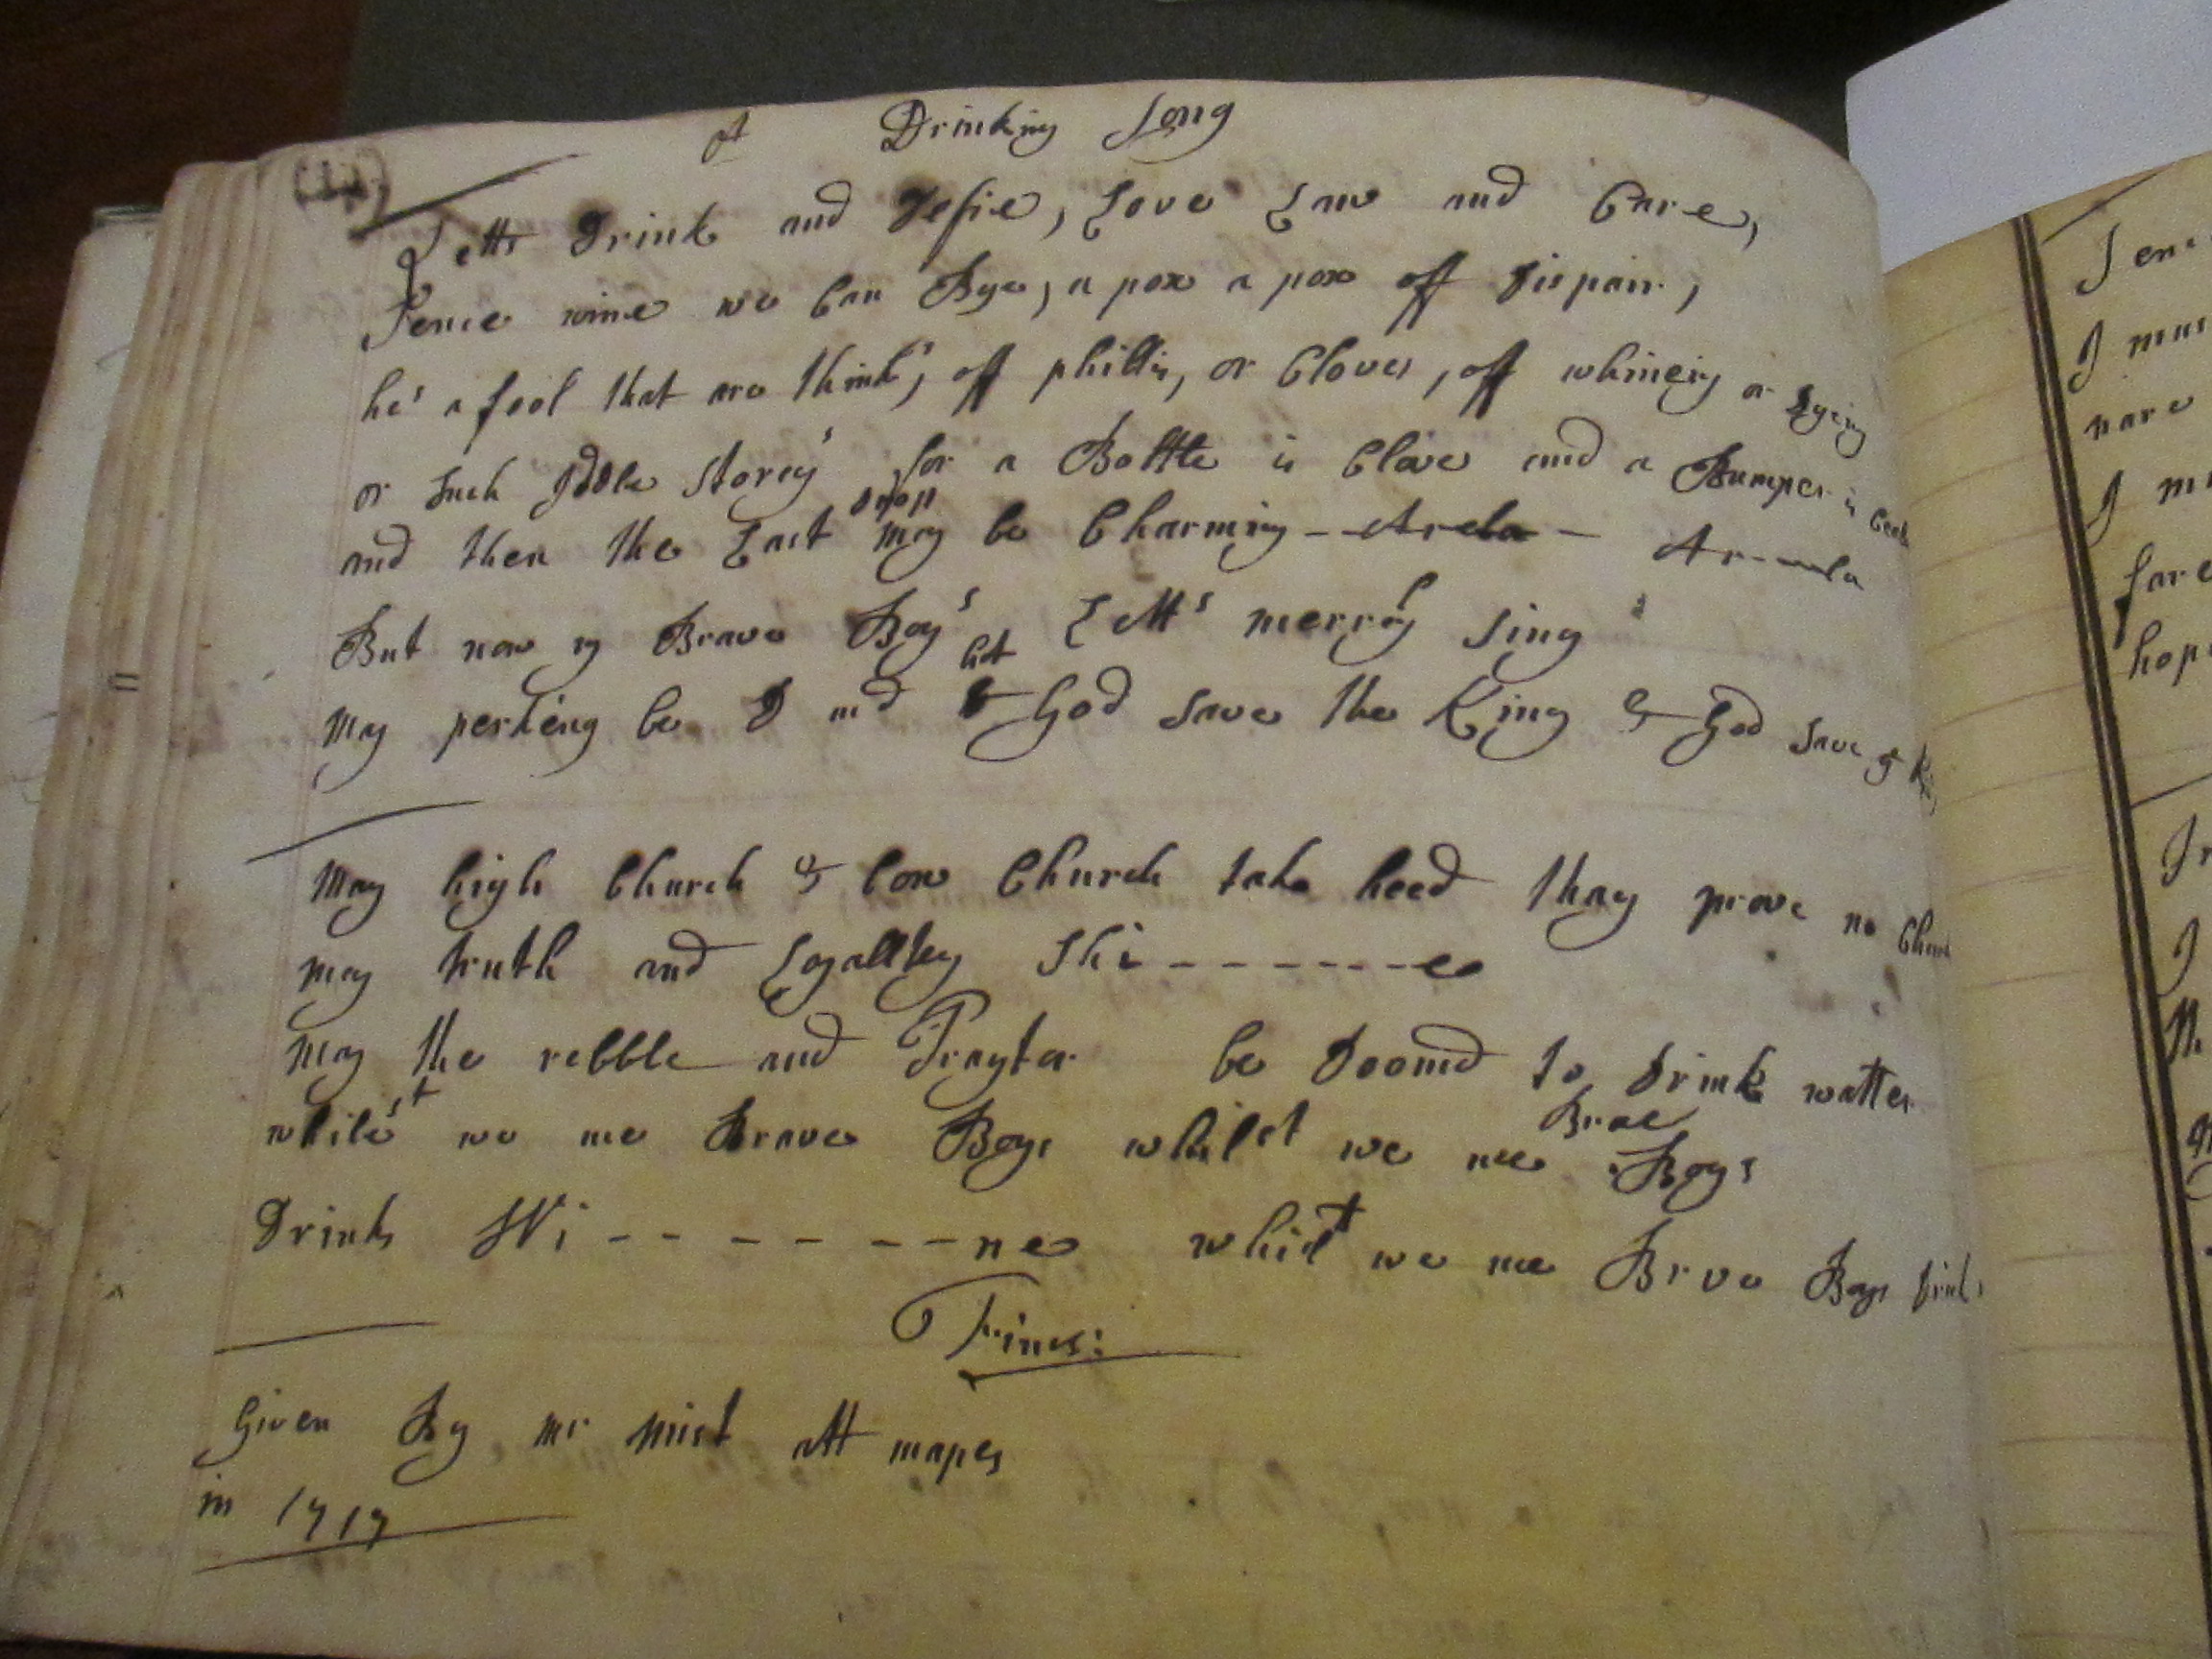 A Drinking Song
Letts Drink and Defie, Love Law and Care,
Sence wine we Can Bye, a pox a pox off Dispair,
he's a fool that are think's off phillis, or Cloues, off whineing or Dyeing
or such Iddle storey's for a Bottle is Clove and a Bumper is
drop
and then the Last may be Charming -- Arela - Ar---la
But now my Brave Boy's Letts merryly sing
let
may perkeing be D and & God save the King & God save ye King
May high Church & low Church take heed thay prove no
may truth and Loyalltey Shi-------e
may the rebble and Traytor be Doomd to Drink watter
whils't we are Brave Boys whilst we are Brae Boys
Drinks Wi-------ne whilst we are Brve Boys Drinks
Fines:
Given By mr mist att mapes
in 1717
Senc
I mus
nare
I m
fare
hop